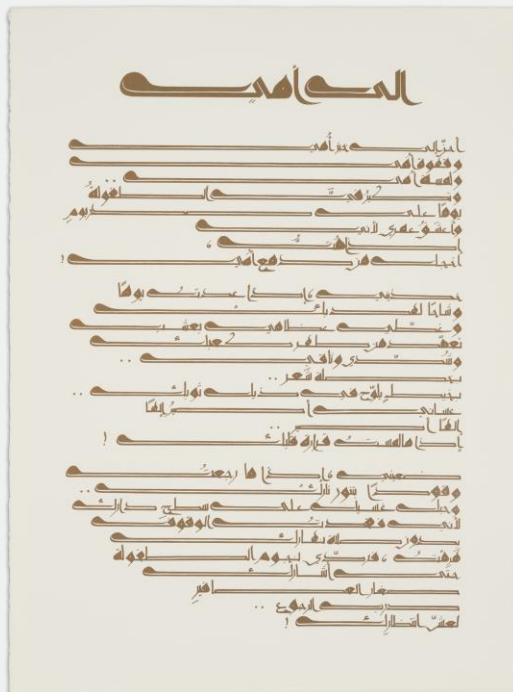 إلى أمي
أحنّ إلى خبز أمي
وقهوة أمي
ولمسة أمي ..
وتكبر فيّ الطفولةُ
يومًا على صدر يومِ
وأعشقُ عمري لأني
إذا متُّ ،
أخجل من دمع أمي !
خذيني ، إذا عدتُ يومًا
وشاحًا لهدبك
وغطّي عظامي بعشب
تعمّد من طهر كعبك
وشدّي وثاقي ..
بخصلة شعر ..
بخيطٍ يلوّح في ذيل ثوبك ..
عساني أصيرُ إلهًا
إلهًا أصير ..
إذا ما لمستُ قرارة قلبك !
ضعيني ، إذا ما رجعتُ
وقودًا بتنور نارك ..
وحبل غسيل على سطح دارك
لأني فقدتُ الوقوفَ
بدون صلاة نهارك
هرمتُ ، فردّي نجوم الطفولة
حتّى أشارك
صغار العصافيرِ
درب الرجوع ..
لعشّ انتظارك !